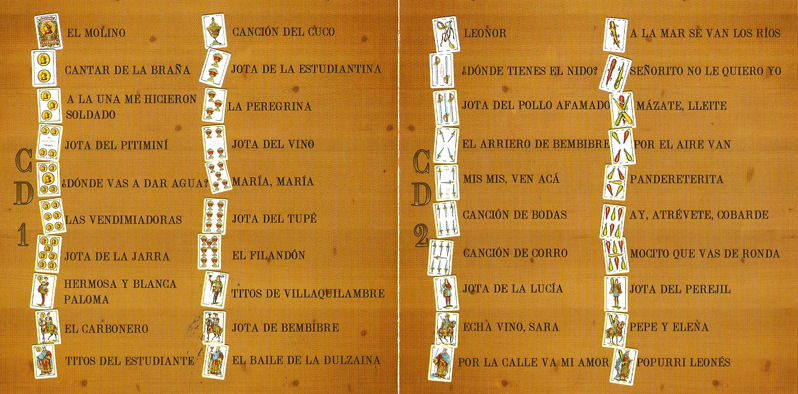 CD 1
EL MOLINO
CANTAR DE LA BRAÑA
A LA UNA ME HICIERON
SOLDADO
JOTA DEL PITIMINÍ
¿DÓNDE VAS A DAR AGUA?
LAS VENDIMIADORAS
JOTA DE LA JARRA
HERMOSA Y BLANCA
PALOMA
EL CARBONERO
TITOS DEL ESTUDIANTE
CANCIÓN DEL CUCO
JOTA DE LA ESTUDIANTINA
LA PEREGRINA
JOTA DEL VINO
MARÍA, MARÍA
JOTA DEL TUPÉ
EL FILANDÓN
TITOS DE VILLAQUILAMBRE
JOTA DE BEMBIBRE
EL BAILE DE LA DULZAINA
CD 2
LEONOR
¿DÓNDE TIENES EL NIDO?
JOTA DEL POLLO AFAMADO
EL ARRIERO DE BEMBIBRE
MIS MIS, VEN ACÁ
CANCIÓN DE BODAS
CANCIÓN DE CORRO
JOTA DE LA LUCÍA
ECHA VINO, SARA
POR LA CALLE VA MI AMOR
A LA MAR SE VAN LOS RÍOS
SEÑORITO NO LE QUIERO YO
MÁZATE, LLEITE
POR EL AIRE VAN
PANDERETERITA
AY, ATRÉVETE, COBARDE
MOCITO QUE VAS DE RONDA
JOTA DEL PEREJIL
PEPE Y ELENA
POPURRI LEONÉS